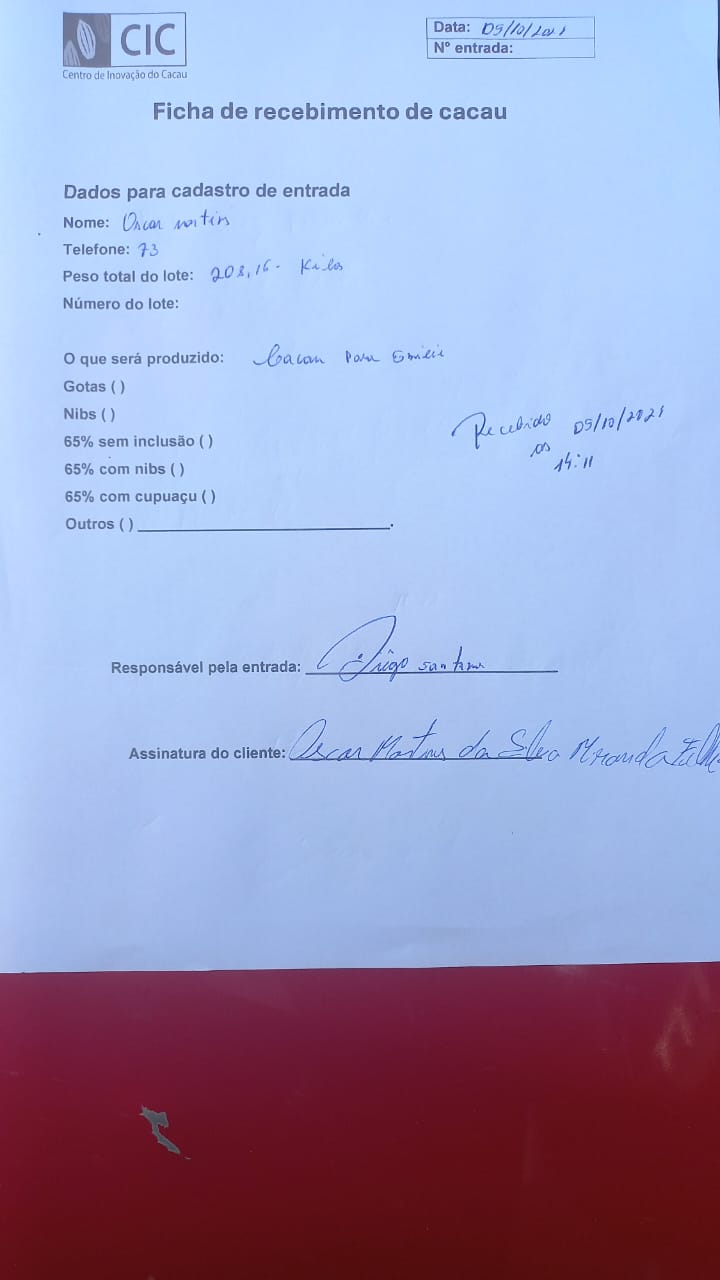 CIC
Centro de Inovação do Cacau
Data: 05/10/2021
Nº entrada:
Ficha de recebimento de cacau
Dados para cadastro de entrada
Nome: Oscar Martins
Telefone: 73
Peso total do lote: 208,16 - Kilos
Número do lote:
O que será produzido: Cacau Para
Gotas ( )
Nibs ( )
65% sem inclusão ( )
65% com nibs ( )
65% com cupuaçu ( )
Outros ( ) .
Recebido 05/10/2021
as
14:11
Responsável pela entrada: santana
Assinatura do cliente: Oscar Martins da Silva Miranda